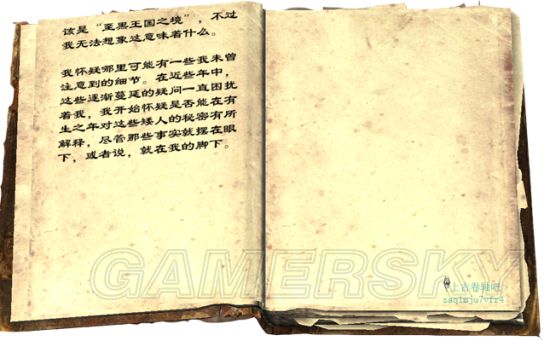 该是“至黑王国之境”，不过
我无法想象这意味着什么。
我怀疑哪里可能有一些我未曾
注意到的细节。在近些年中，
这些逐渐蔓延的疑问一直困扰
着我，我开始怀疑是否能在有
生之年对这些矮人的秘密有所
解释，尽管那些事实就摆在眼
下，或者说，就在我的脚下。
GAMERSKY
上古卷轴吧
zaq1mju7vfr4